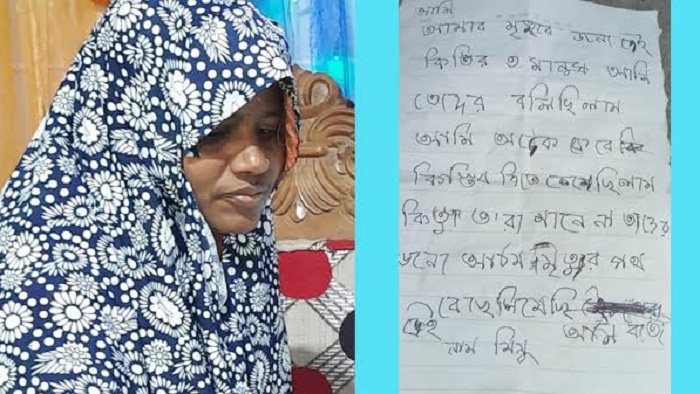 আমি
আমার মৃত্যুর জন্যে এই
কিস্তির ও মানুষ আমি
তাদের বলিছিলাম
আমি অটেক করে
কিস্তির দিতে চেয়েছিলাম
কিন্তু তারা মানে না তাদের
জন্যে আমি মৃত্যুর পথ
বেছে নিয়েছি
এই আমি
নাম মিনু